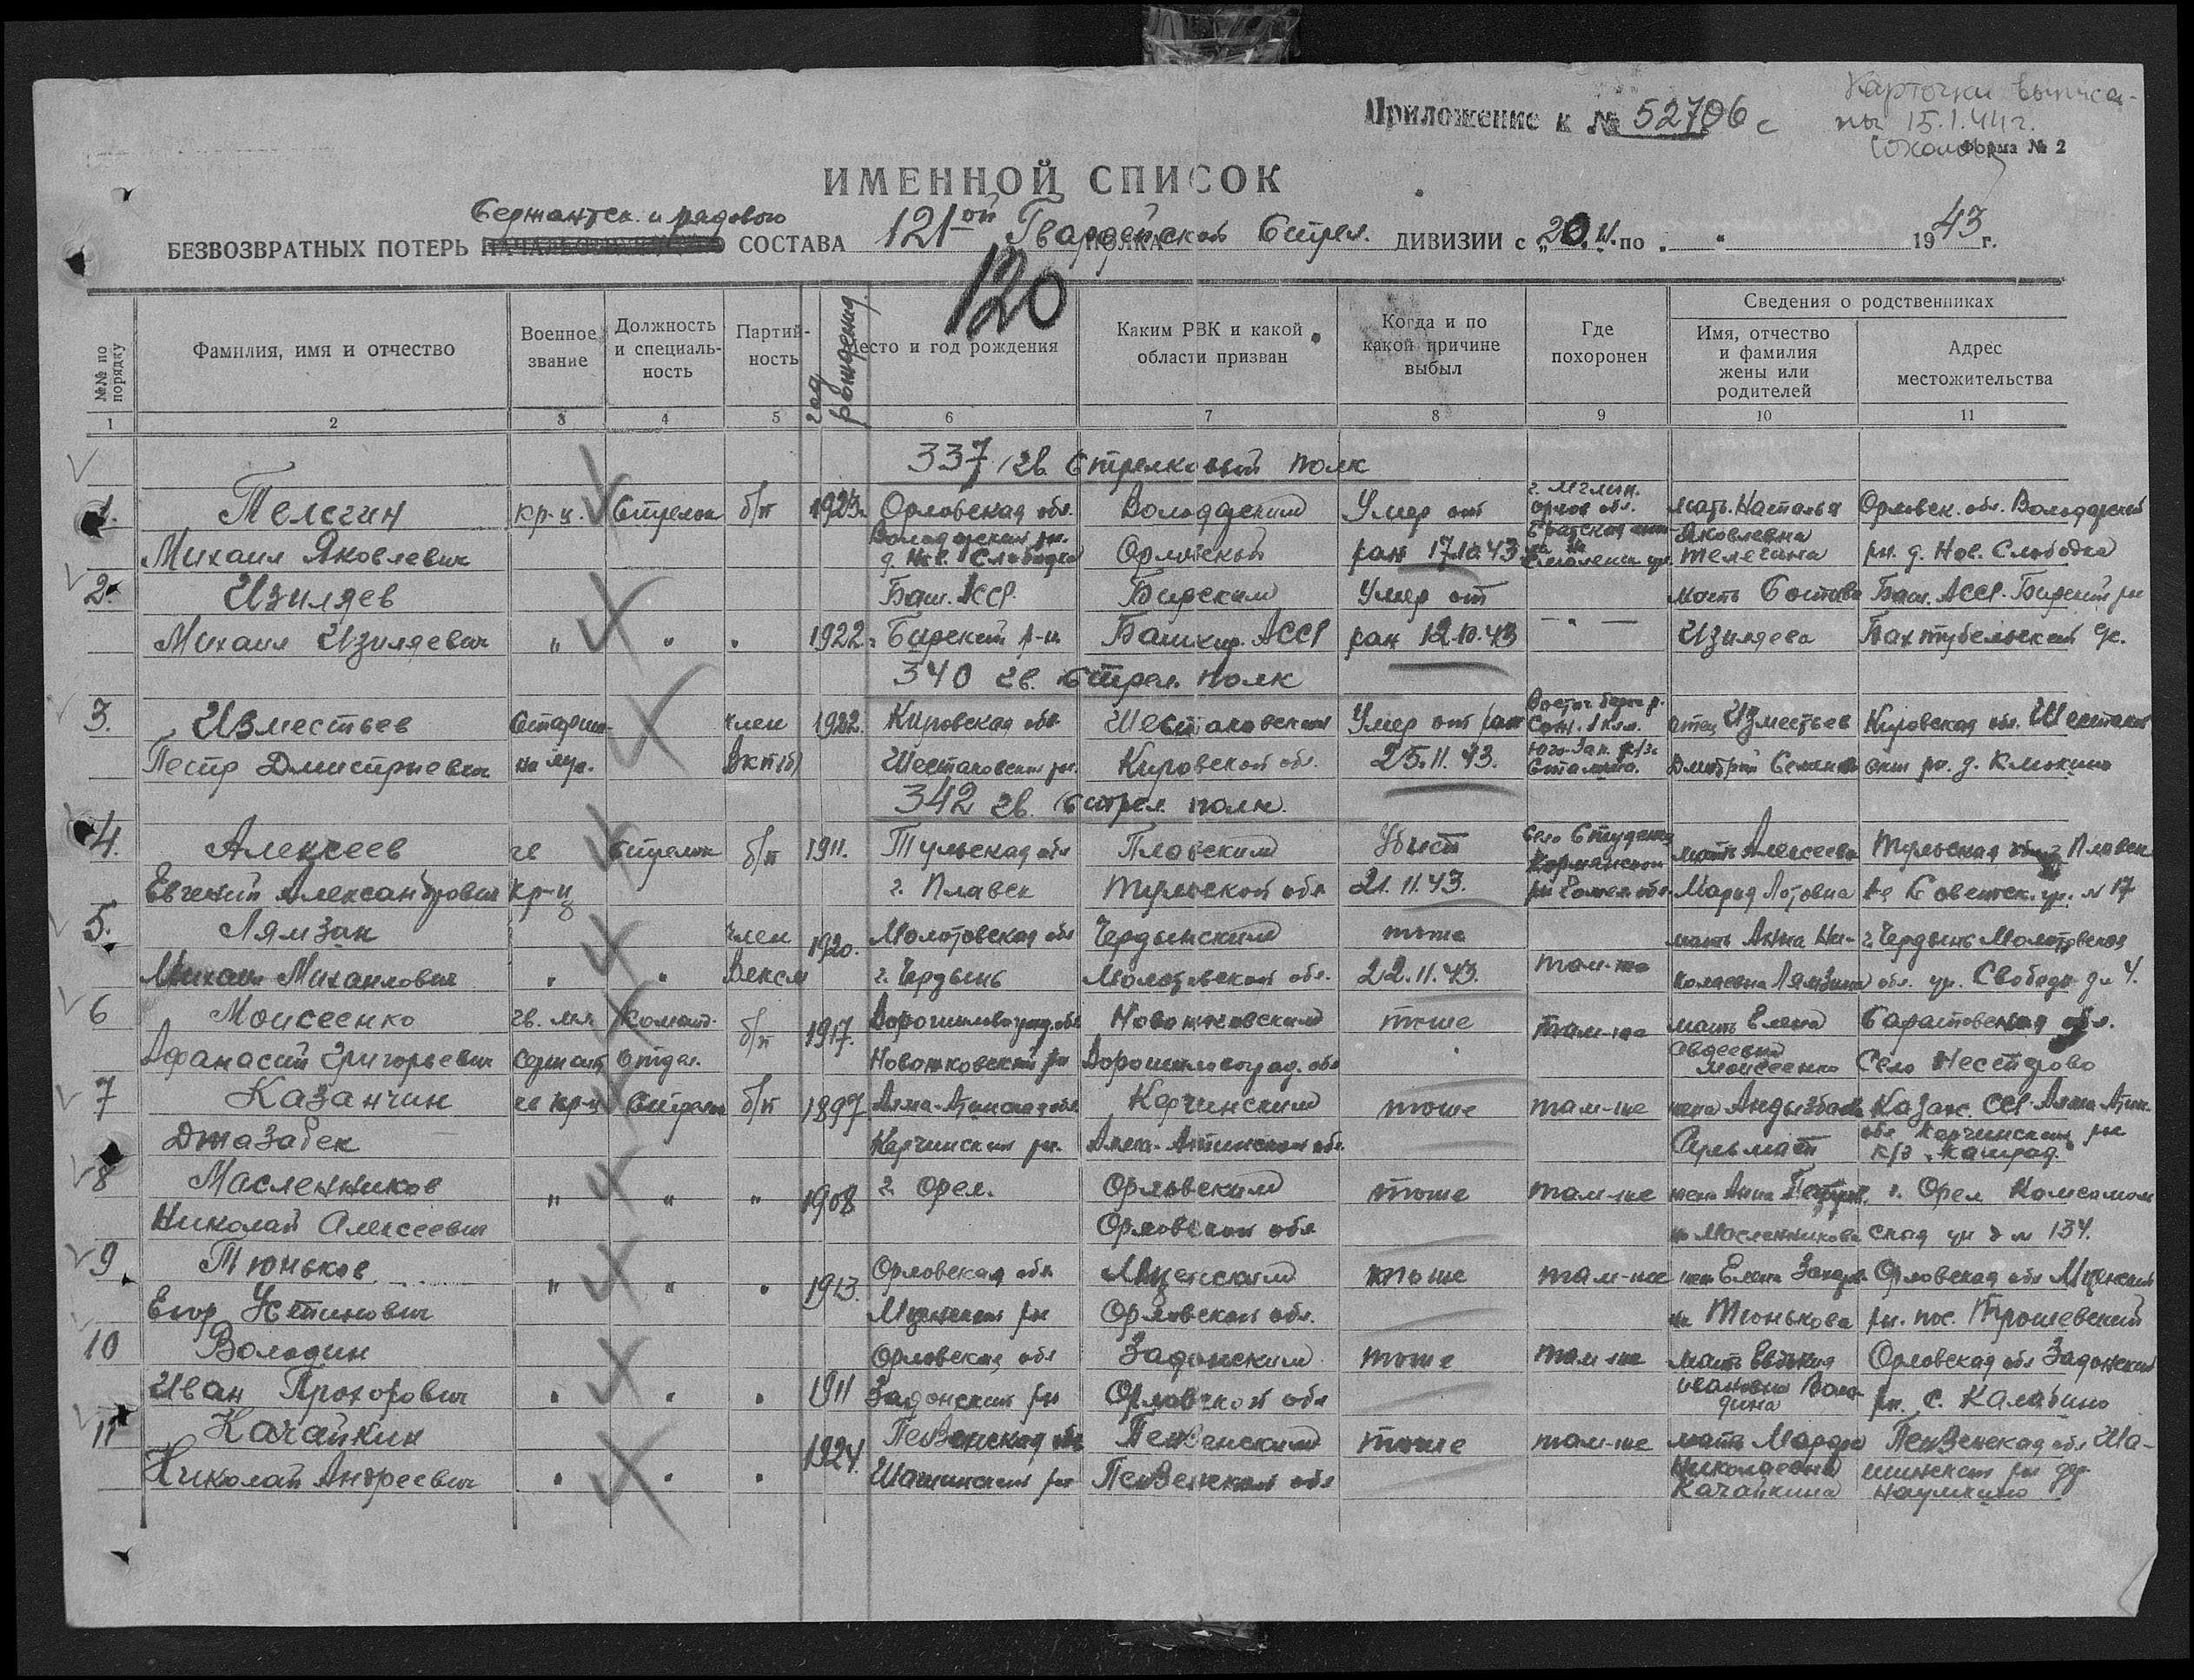 Приложение к № 52706 с
Карточки выписа-
ны 15.1.44 г.
Форма № 2
ИМЕННОЙ СПИСОК
Сержантск. и рядового
БЕЗВОЗВРАТНЫХ ПОТЕРЬ СОСТАВА 121-ой Гвардейской Стрел. ДИВИЗИИ с „20.11. по „ “ 1943 г.
120
№№ по порядку
Фамилия, имя и отчество
Военное звание
Должность и специаль-ность
Партий-ность
год рождения
Место и год рождения
Каким РВК и какой области призван
Когда и по какой причине выбыл
Где похоронен
Сведения о родственниках
Имя, отчество и фамилия жены или родителей
Адрес местожительства
1 2 3 4 5 6 7 8 9 10 11
337 гв. Стрелковый полк
1. Телегин кр-ц. Стрелок б/п 1923 Орловская обл. Володарским Умер от г. Мглин. Орлов обл. мать Наталья Орловск. обл. Володарский
Михаил Яковлевич Володарский рн. д. Нов. Слободка Орловской ран 17.10.43 Братская Яковлевна Телегина рн. д. Нов. Слободка
2. Изиляев Баш. АССР. Бирским Умер от мать Баш. АССР. Бирский рн
Михаил Изиляевич " " " 1922 Бирский р-н Башкир. АССР ран 12.10.43 — " — Изиляева
340 гв. Стрел. полк
3. Изместьев Старши- член 1922 Кировская обл Шестаковским Умер от ран Восточ. берег р. Сож. 1 клм. отец Изместьев Кировская обл. Шестаков
Петр Дмитриевич на ВКП(б) Шестаковский рн. Кировской обл. 25.11.43. Юго-Зап. Дмитрий ский рн. д. Клюкино
342 гв. Стрел. полк.
4. Алексеев гв Стрелок б/п 1911. Тульская обл Плавским Убит Село Студенец мать Алексеева Тульская обл г Плавск
Евгений Александрович кр-ц г. Плавск Тульской обл 21.11.43. Кормянского рн Гомел. обл. Мария № 17
5. Лямзан член 1920. Молотовская обл Чердынским тоже мать Анна Ни- г. Чердынь Молотовская
Михаил Михайлович " " ВЛКСМ г. Чердынь Молотовской обл. 22.11.43. там-же колаевна Лямзина обл. ул. Свобода д. 4.
6 Моисеенко гв. мл. Команд. б/п 1917. Ворошиловград. обл тоже там-же мать Елена Саратовская обл.
Афанасий Григорьевич сержант отдел. Ворошиловград. обл Авдеевна Моисеенко Село Нестерово
7 Казанчин гв кр-ц Стрелок б/п 1897 Алма-Атинская обл тоже там-же жена Казах. ССР Алма Атин.
Джазабек Алма-Атинской обл.
8 Масленников " " " 1908 г. Орел. Орловским тоже там-же жена Анна Петров. г. Орел Комсомоль
Николай Алексеевич Орловской обл на Масленникова ская ул д № 134.
9 Тюньков " " " 1913. Орловская обл Мценским тоже там-же жена Елена Орловская обл Мценский
Егор Устинович Мценский рн Орловской обл. на Тюнькова рн. пос.
10 Володин Орловская обл Задонским тоже там-же мать Евдокия Орловская обл Задонский
Иван Прохорович " " " 1911 Задонский рн Орловской обл Ивановна Володина рн. с. Калабино
11 Качайкин 1924. Пензенская обл Пензенским тоже там-же мать Марфа Пензенская обл Ша-
Николай Андреевич " " " Пензенской обл Николаевна Качайкина Наумкино